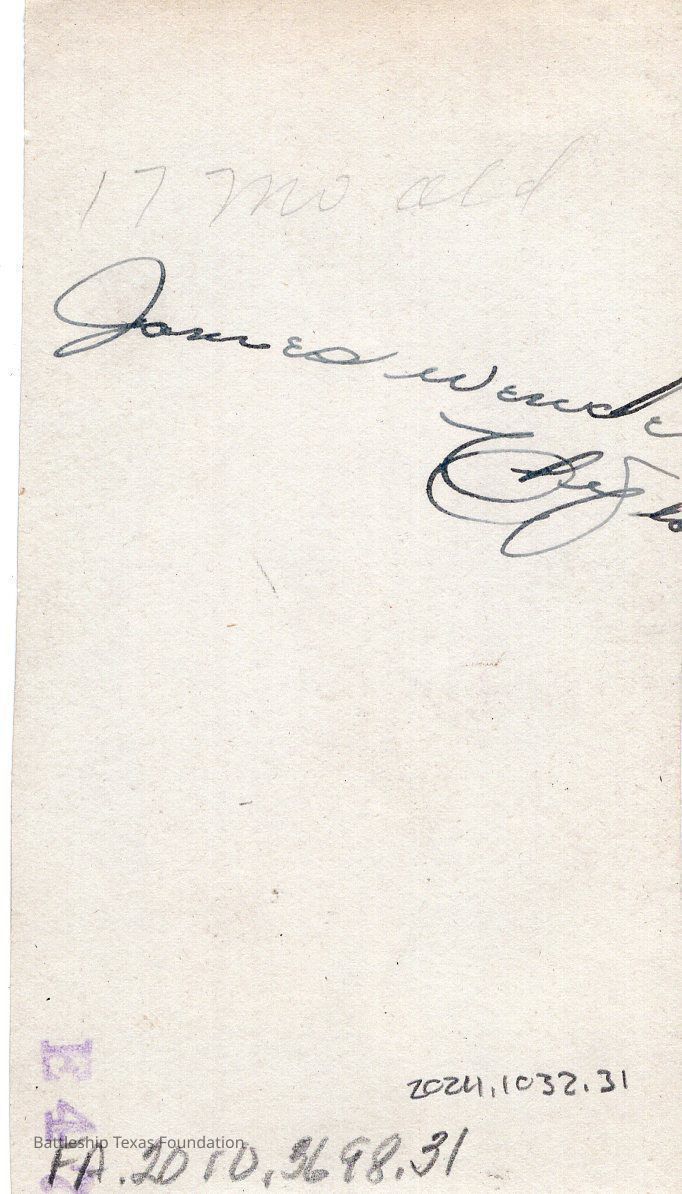 17 mo old
James Wende
2024.1032.31
E 4
Battleship Texas Foundation
FA.2010.3698.31